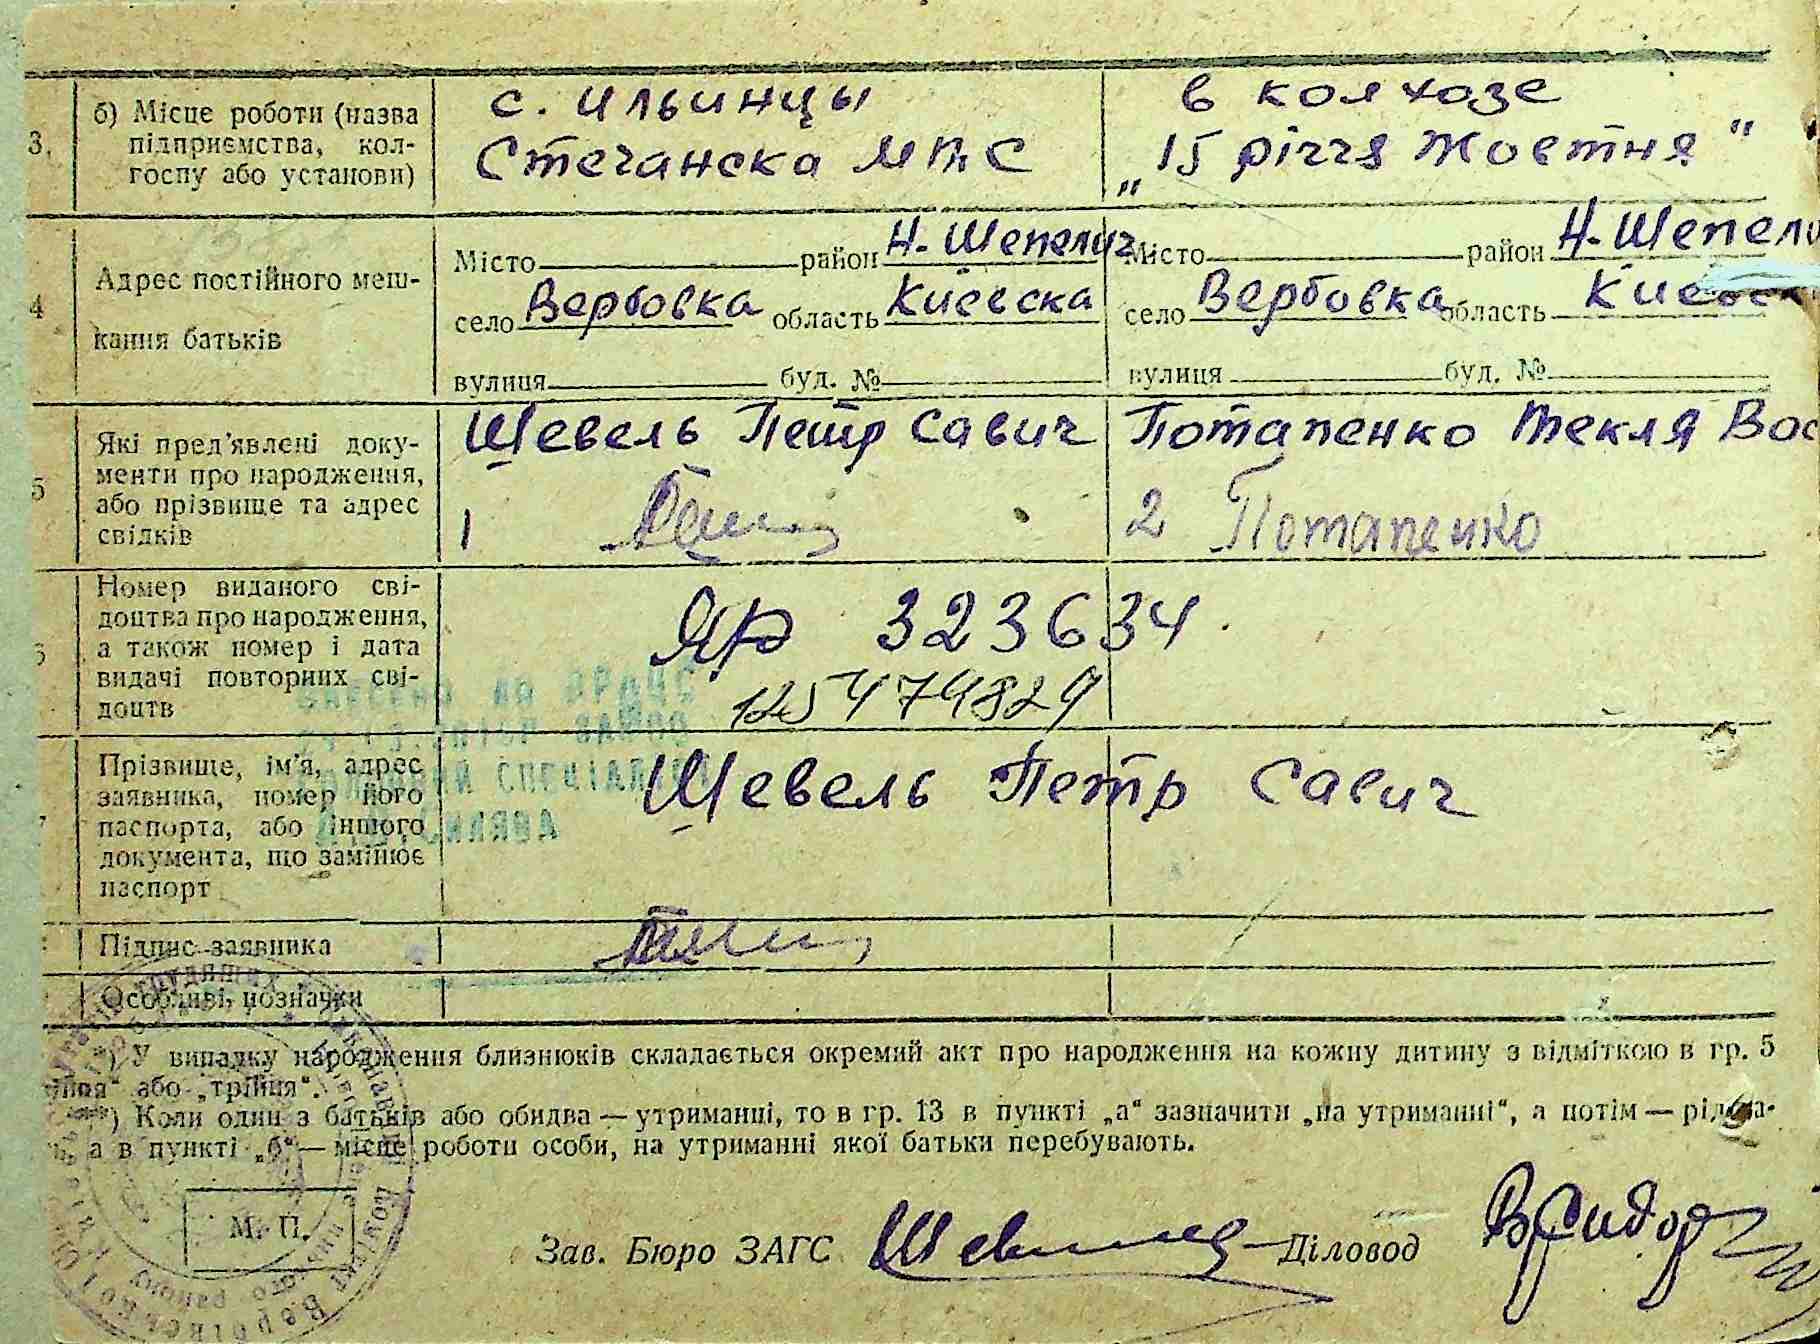 3. б) Місце роботи (назва
підприємства, кол-
госпу або установи)
с. Ильинцы
Стечанска МТС
в колхозе
„15 річчя Жовтня"
4 Адрес постійного меш-
кання батьків
Місто район Н-Шепелич
село Вербовка область Киевска
вулиця буд. №
Місто район Н-Шепели
село Вербовка область Киевск
вулиця буд. №
5 Які пред'явлені доку-
менти про народження,
або прізвище та адрес
свідків
Шевель Петр Савич
1
Потапенко Текля Вас
2 Потапенко
6 Номер виданого сві-
доцтва про народження,
а також номер і дата
видачі повторних сві-
доцтв
ЯР 323634
125474829
7 Прізвище, ім'я, адрес
заявника, номер його
паспорта, або іншого
документа, що замінює
паспорт
Шевель Петр Савич
Підпис заявника
Особливі позначки
*) У випадку народження близнюків складається окремий акт про народження на кожну дитину з відміткою в гр. 5
або „трійня".
**) Коли один з батьків або обидва — утриманці, то в гр. 13 в пункті „а" зазначити „на утриманні", а потім —
а в пункті „б" — місце роботи особи, на утриманні якої батьки перебувають.
М. П.
Зав. Бюро ЗАГС Діловод